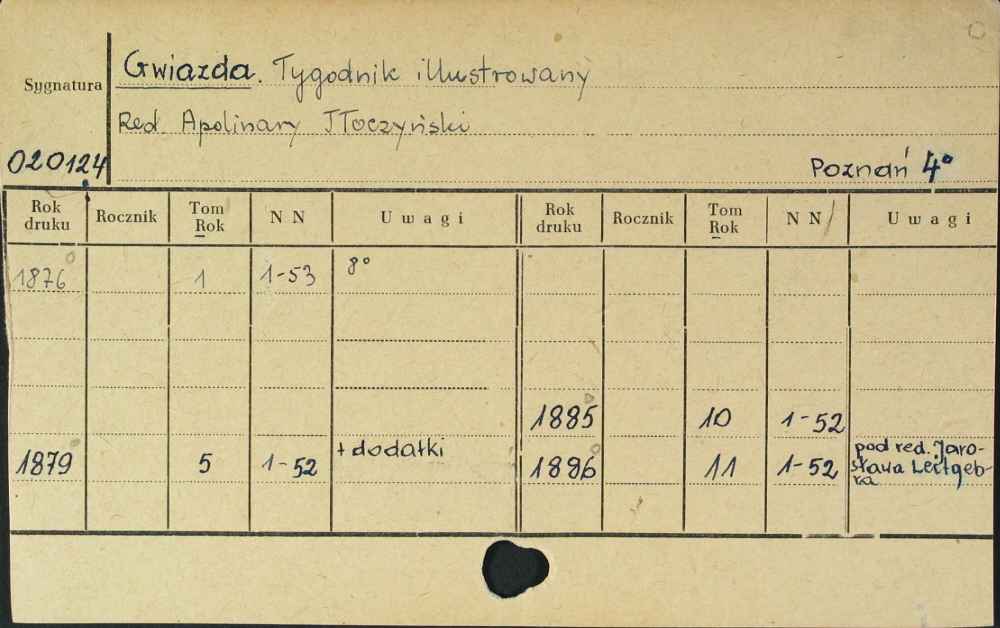 Sygnatura
Gwiazda. Tygodnik illustrowany
Red. Apolinary Tłoczyński
020124
Poznań 4°
Rok druku Rocznik Tom Rok N N Uwagi Rok druku Rocznik Tom Rok N N Uwagi
1876 1 1-53 8°
1885 10 1-52
1879 5 1-52 + dodatki 1886 11 1-52 pod red. Jaro-
sława Leitgeb-
ra